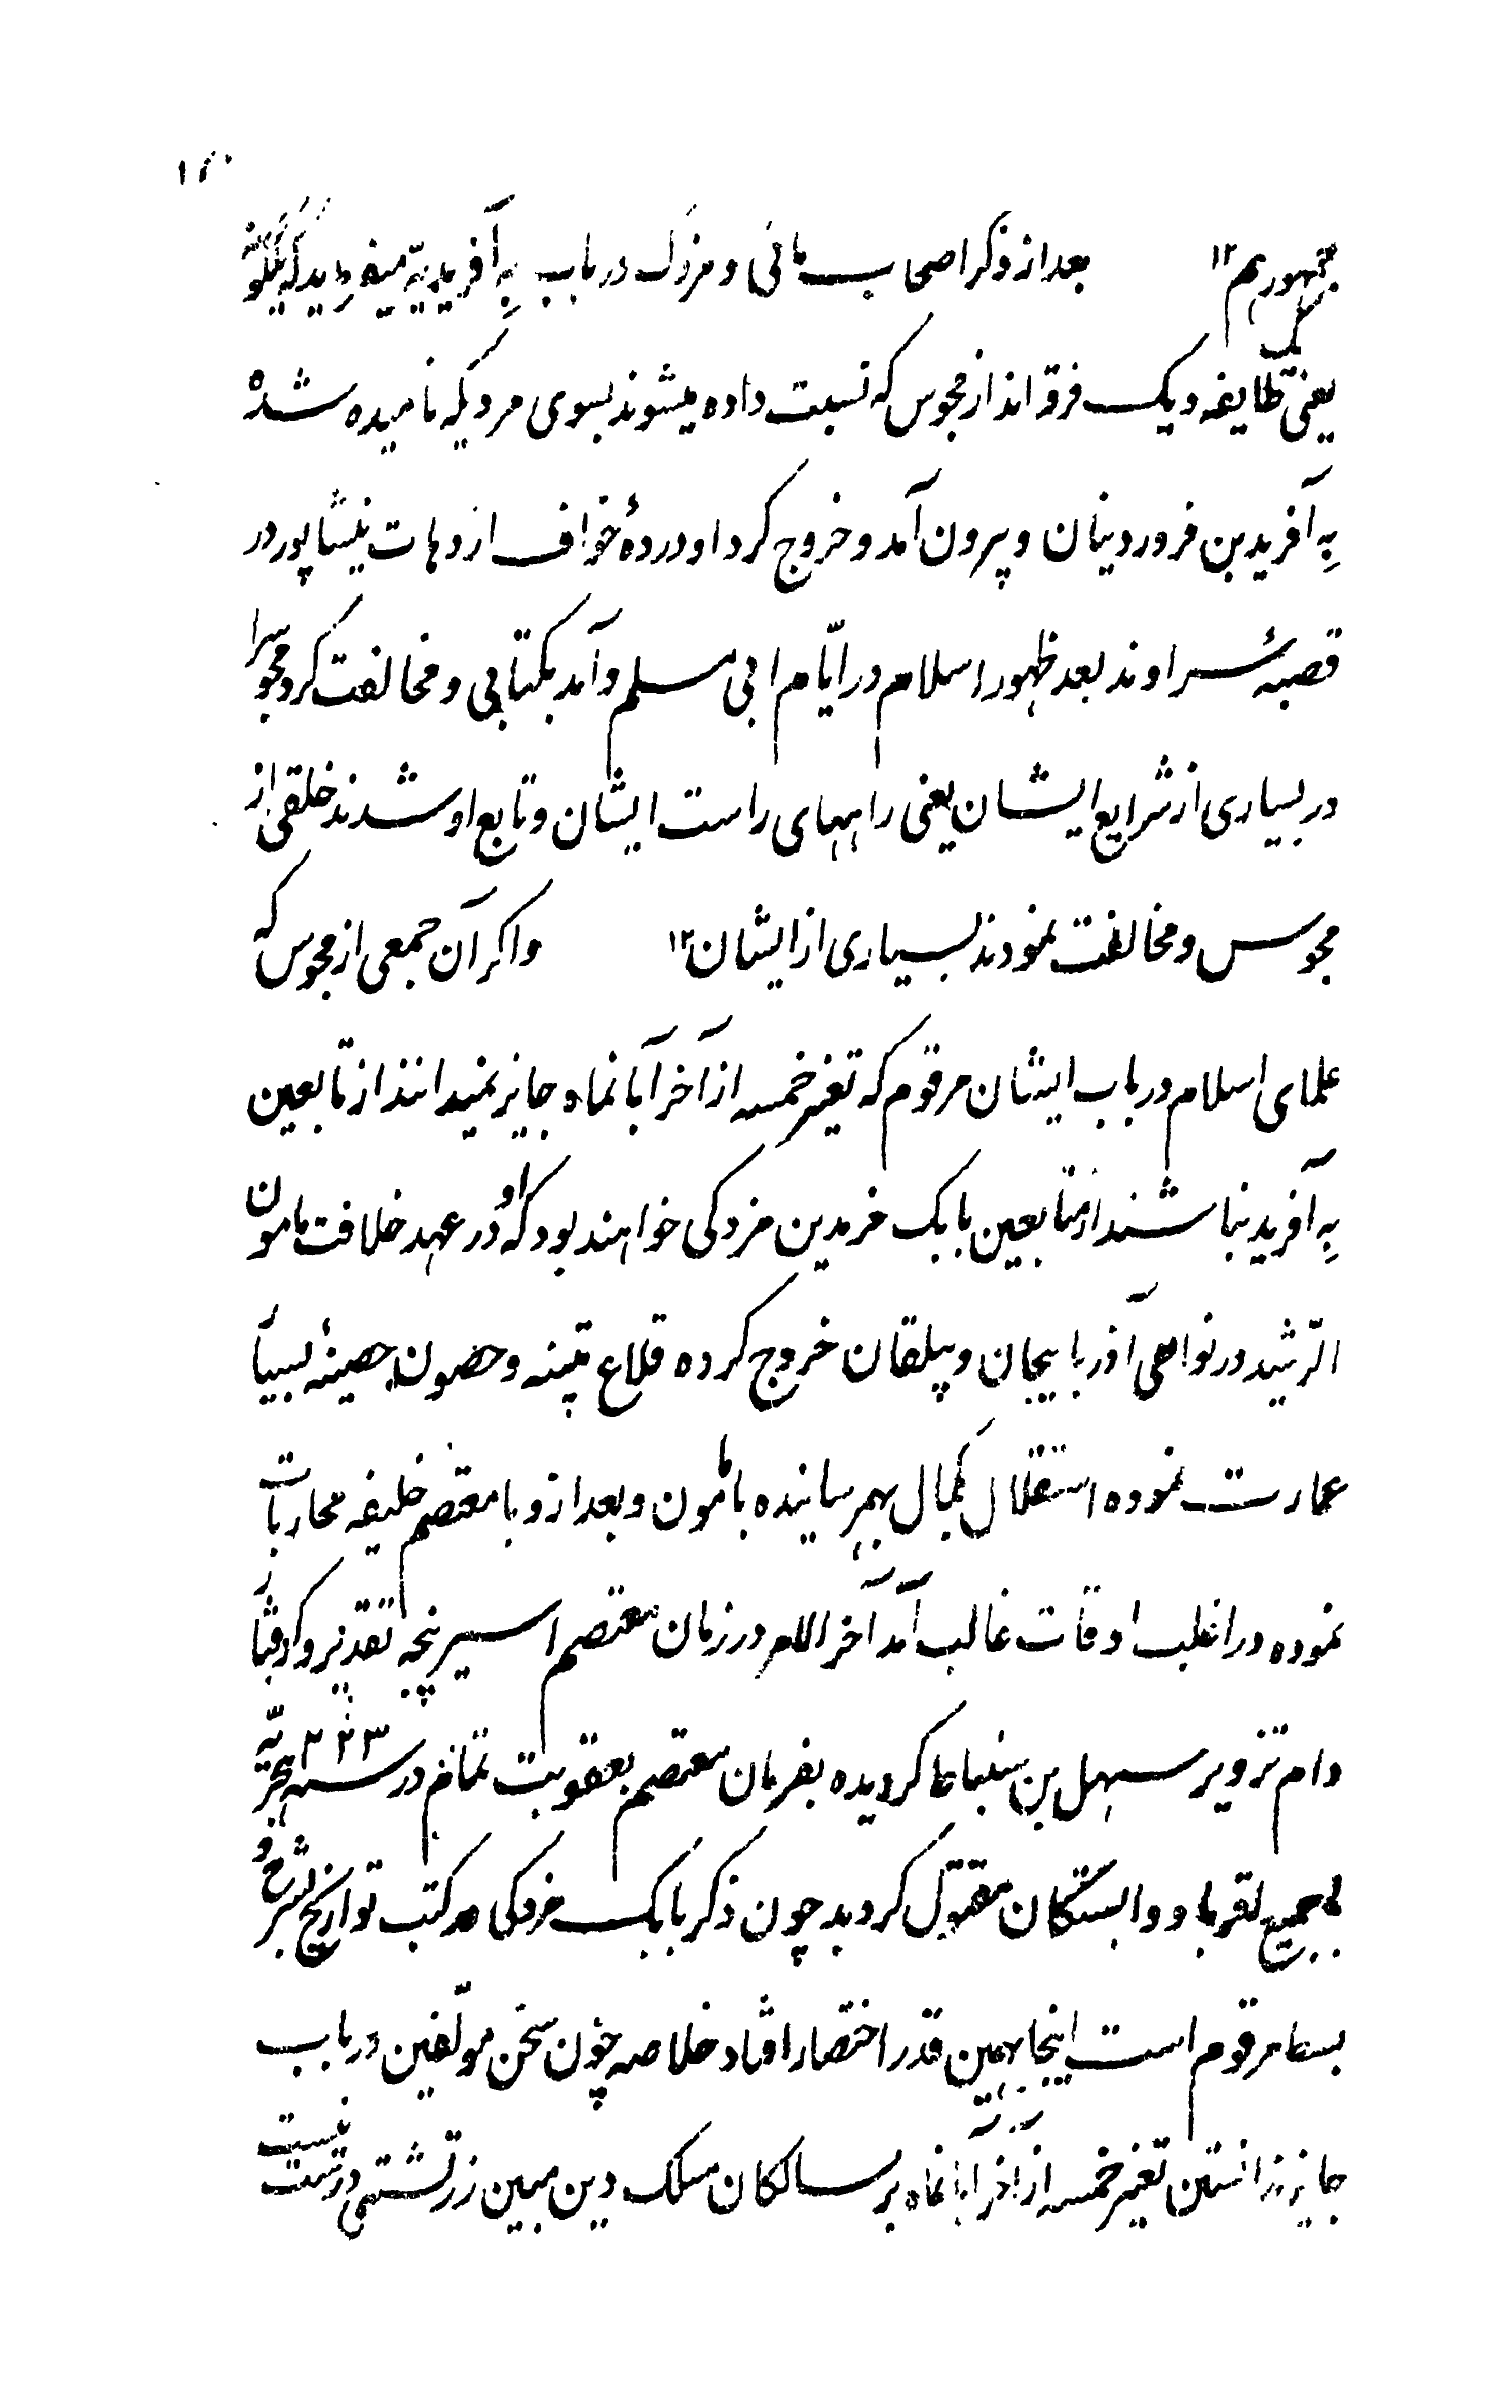 ۱۲۰
جمهورهم ۱۲ بعد از ذکر اصحاب مانی و مزدک در باب بِه آفریدیّه میفرماید که یکگونه
یعنی یک طایفه و یک فرقه اند از مجوس که نسبت داده میشوند بسوی مردیکه نامیده شده
بِه آفرید بن فروردینان و بیرون آمد و خروج کرد او در دهٔ خواف از دهات نیشاپور در
قصبهٔ سراوند بعد ظهور اسلام در ایّام ابی مسلم و آمد بکتابی و مخالفت کرد مجوس را
در بسیاری از شرایع ایشان یعنی راههای راست ایشان و تابع او شدند خلقی از
مجوس و مخالفت نمودند بسیاری از ایشان ۱۲ و اکر آن جمعی از مجوس که
علمای اسلام در باب ایشان مرقوم که تغیر خمسه از آخر آبانماه جایز نمیدانند از تابعین
بِه آفرید نباشند از متابعین بابک خرمدین مزدکی خواهند بود که او در عهد خلافت مامون
الرّشید در نواحی آذربایجان و بیلقان خروج کرده قلاع متینه و حصون حصینهٔ بسیا
عمارت نموده استقلال بکمال بهم رسانیده با مامون و بعد ازو با معتصم خلیفه محاربات
نموده در اغلب اوقات غالب آمد آخر الامر در زمان معتصم اسیر پنجه تقدیر و کرفتار
دام تزویر سهل بن سنباط کردیده بفرمان معتصم بعقوبت تمام در سنه ۲۲۳ هجریّه
با جمیع اقربا و وابستکان مقتول کردید چون ذکر بابک مزدکی در کتب تواریخ بشرح و
بسط مرقوم است اینجا بهمین قدر اختصار افتاد خلاصه چون سخن مولّفین در باب
جایز ندانستن تغیر خمسه از آخر آبانماه بر سالکان مسلک دین مبین زرتشتی درست نیست